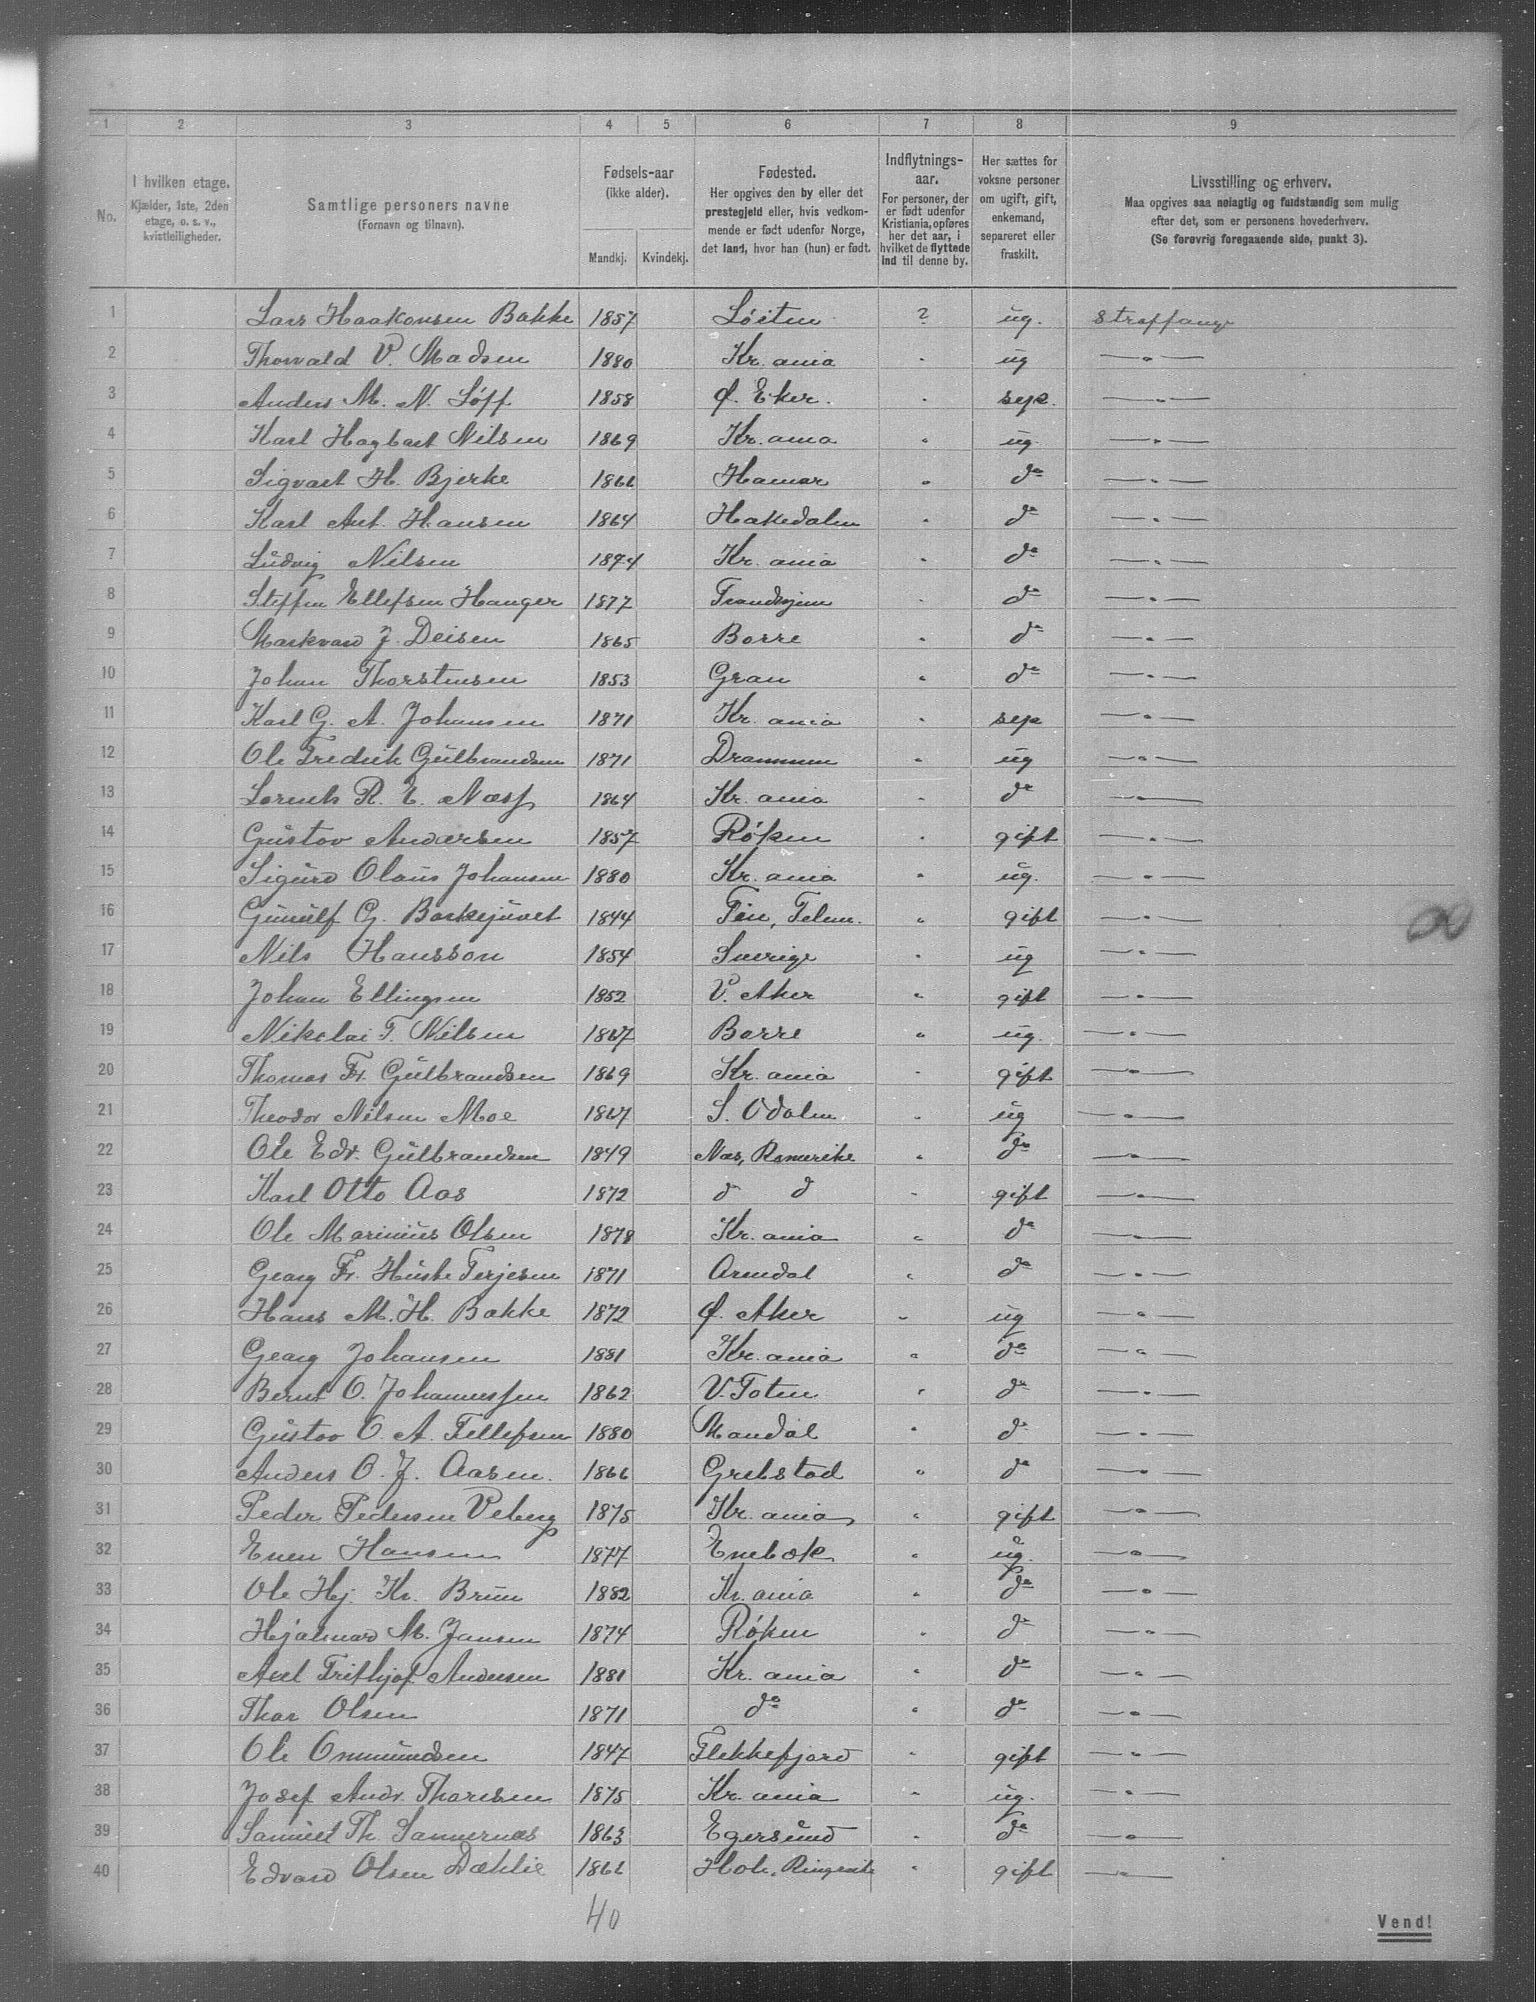 1 2 3 4 5 6 7 8 9
No.
I hvilken etage.
Kjælder, 1ste, 2den
etage, o. s. v.,
kvistleiligheder.
Samtlige personers navne
(Fornavn og tilnavn).
Fødsels-aar
(ikke alder).
Mandkj. Kvindekj.
Fødested.
Her opgives den by eller det
prestegjeld eller, hvis vedkom-
mende er født udenfor Norge,
det land, hvor han (hun) er født.
Indflytnings-
aar.
For personer, der
er født udenfor
Kristiania, opføres
her det aar, i
hvilket de flyttede
ind til denne by.
Her sættes for
voksne personer
om ugift, gift,
enkemand,
separeret eller
fraskilt.
Livsstilling og erhverv.
Maa opgives saa nøiagtig og fuldstændig som mulig
efter det, som er personens hovederhverv.
(Se forøvrig foregaaende side, punkt 3).
1 Lars Haakonsen Bakke 1857 Løiten ? ug. Straffange
2 Thorvald V. Madsen 1880 Kr.ania " ug —"—
3 Anders M. N. Løff 1858 Ø. Eker. " sep. —"—
4 Karl Hagbart Nilsen 1869 Kr.ania " ug. —"—
5 Sigvart H. Bjerke 1866 Hamar " do —"—
6 Karl Ant. Hansen 1864 Hakedalen " do —"—
7 Ludvig Nilsen 1874 Kr.ania " do —"—
8 Steffen Ellefsen Hanger 1877 Trondhjem " do —"—
9 Markvard J. Deisen 1865 Borre " do —"—
10 Johan Thorstensen 1853 Gran " do —"—
11 Karl G. A. Johansen 1871 Kr.ania " sep —"—
12 Ole Fredrik Gulbrandsen 1871 Drammen " ug —"—
13 Lorents R. E. Næss 1864 Kr.ania " do —"—
14 Gustav Andersen 1857 Røken " gift —"—
15 Sigurd Olaus Johansen 1880 Kr.ania " ug. —"—
16 Gunulf G. Barkejuvet 1844 Tin, Telem. " gift —"—
17 Nils Hansson 1854 Sverige " ug —"—
18 Johan Ellingsen 1852 V. Aker " gift —"—
19 Nikolai T. Nilsen 1867 Borre " ug. —"—
20 Thomas Fr. Gulbrandsen 1869 Kr.ania " gift —"—
21 Theodor Nilsen Moe 1867 S. Odalen " ug —"—
22 Ole Edv. Gulbrandsen 1849 Næs, Romerike " do —"—
23 Karl Otto Aas 1872 d d " gift —"—
24 Ole Marinius Olsen 1878 Kr.ania " do —"—
25 Georg Fr. Huske Terjesen 1871 Arendal " do —"—
26 Hans M. H. Bakke 1872 Ø. Aker " ug —"—
27 Georg Johansen 1881 Kr.ania " do —"—
28 Bernt O. Johannessen 1862 V. Toten " do —"—
29 Gustav O. A. Tellefsen 1880 Mandal " do —"—
30 Anders O. J. Aasen. 1866 Grebstad " do —"—
31 Peder Pedersen Veberg 1875 Kr.ania " gift —"—
32 Even Hansen 1877 Enebak " ug. —"—
33 Ole Hj. Kr. Bruun 1882 Kr.ania " do —"—
34 Hjalmar M. Jansen 1874 Røken " do —"—
35 Axel Frithjof Andersen 1881 Kr.ania " do —"—
36 Thor Olsen 1871 do " do —"—
37 Ole Ommundsen 1847 Flekkefjord " gift —"—
38 Josef Andr. Thoresen 1875 Kr.ania " ug. —"—
39 Samuel Th. Sannernæs 1863 Egersund " do —"—
40 Edvard Olsen Dæhlie 1866 Hole, Ringerike " gift —"—
40
Vend!